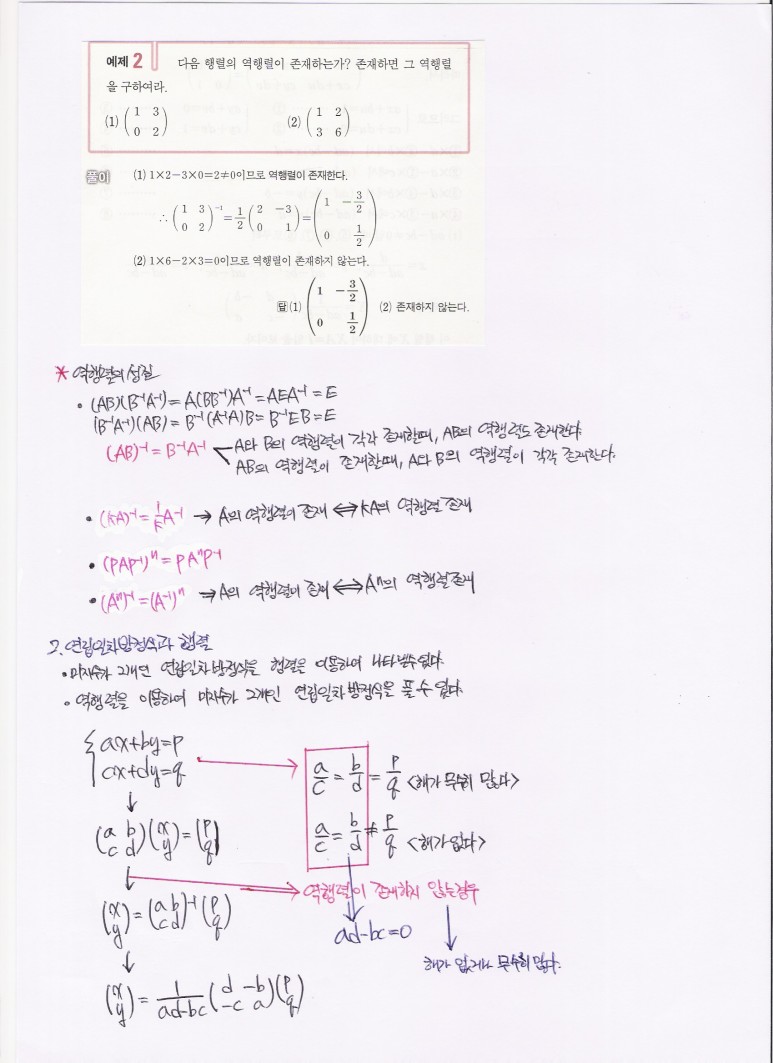 예제 2 다음 행렬의 역행렬이 존재하는가? 존재하면 그 역행렬
을 구하여라.
(1) (1 3 / 0 2) (2) (1 2 / 3 6)
풀이 (1) 1×2−3×0=2≠0이므로 역행렬이 존재한다.
∴ (1 3 / 0 2)⁻¹ = 1/2 (2 −3 / 0 1) = (1 −3/2 / 0 1/2)
(2) 1×6−2×3=0이므로 역행렬이 존재하지 않는다.
답 (1) (1 −3/2 / 0 1/2) (2) 존재하지 않는다.
* 역행렬의 성질
• (AB)(B⁻¹A⁻¹) = A(BB⁻¹)A⁻¹ = AEA⁻¹ = E
(B⁻¹A⁻¹)(AB) = B⁻¹(A⁻¹A)B = B⁻¹EB = E
(AB)⁻¹ = B⁻¹A⁻¹ A와 B의 역행렬이 각각 존재할때, AB의 역행렬도 존재한다.
AB의 역행렬이 존재할때, A와 B의 역행렬이 각각 존재한다.
• (kA)⁻¹ = 1/k A⁻¹ → A의 역행렬이 존재 ⟺ kA의 역행렬 존재
• (PAP⁻¹)ⁿ = PAⁿP⁻¹
• (Aⁿ)⁻¹ = (A⁻¹)ⁿ → A의 역행렬이 존재 ⟺ Aⁿ의 역행렬 존재
2. 연립일차방정식과 행렬
• 미지수가 2개인 연립일차방정식을 행렬을 이용하여 나타낼수있다.
• 역행렬을 이용하여 미지수가 2개인 연립일차방정식을 풀 수 있다.
{ ax+by=p
cx+dy=q
→ a/c = b/d = p/q <해가 무수히 많다>
↓
(a b / c d)(x / y) = (p / q)
a/c = b/d ≠ p/q <해가 없다>
↓ → 역행렬이 존재하지 않는경우
(x / y) = (a b / c d)⁻¹ (p / q)
ad-bc=0
↓
해가 없거나 무수히 많다.
(x / y) = 1/(ad-bc) (d -b / -c a)(p / q)